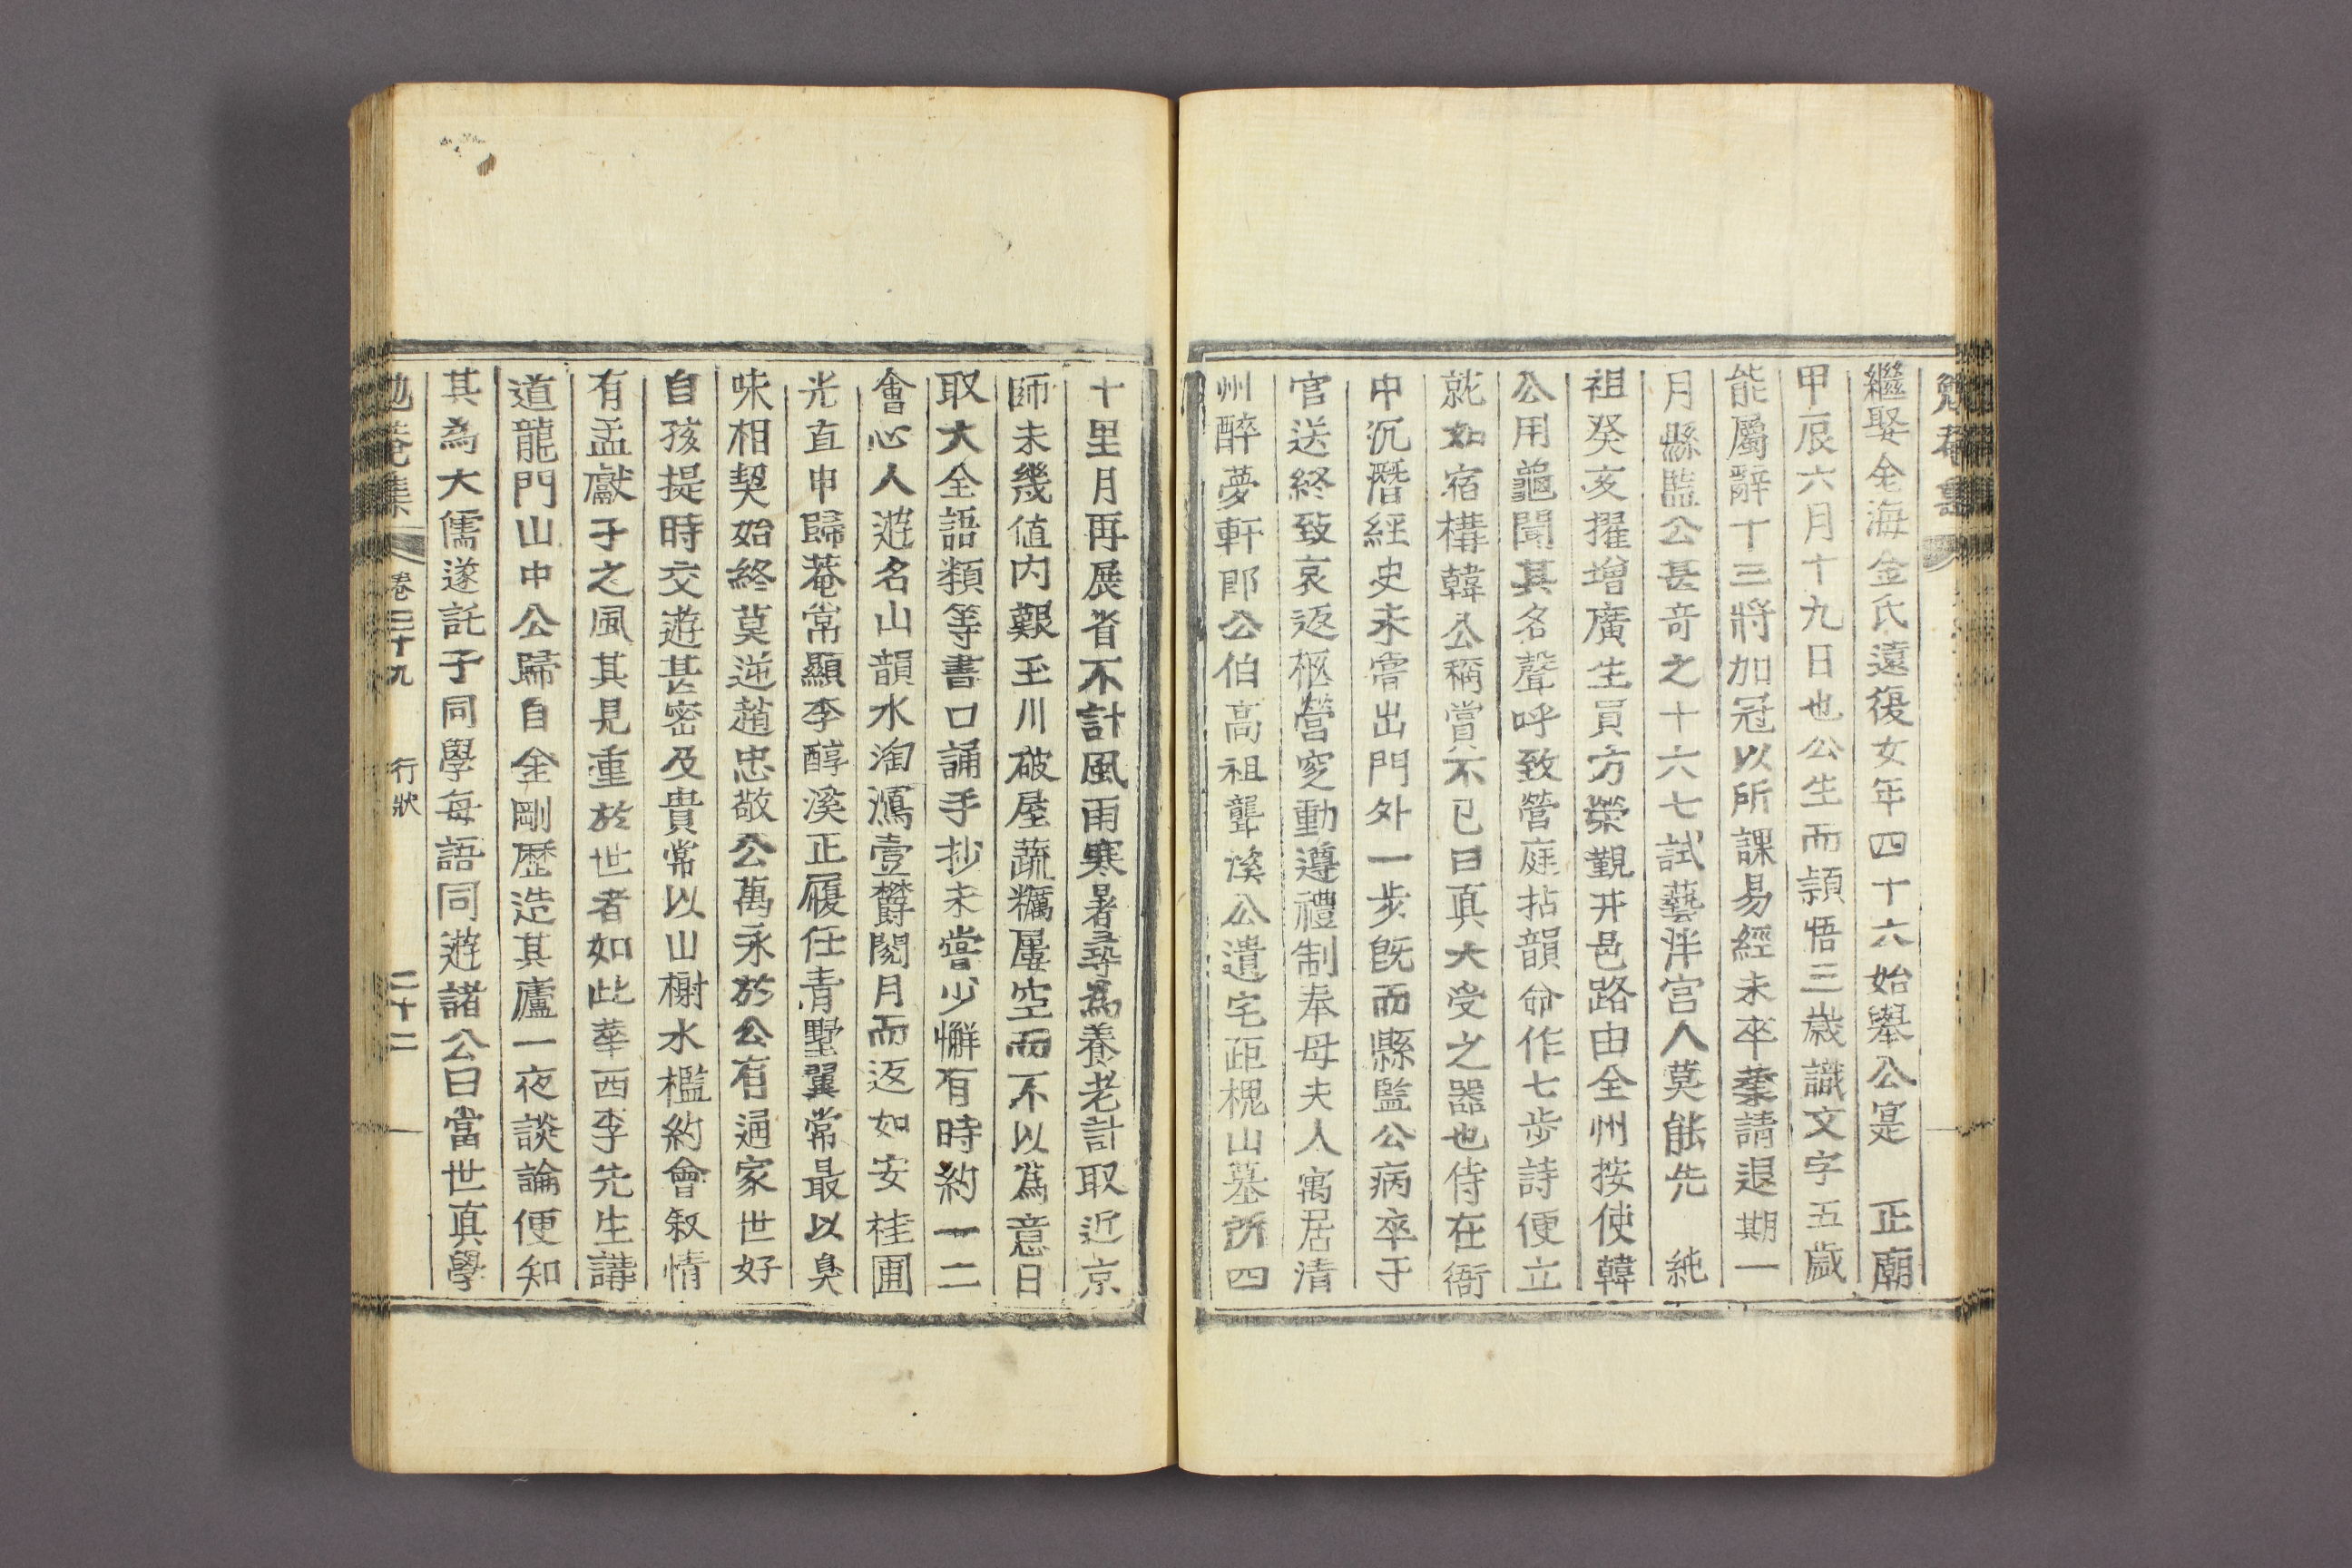 勉菴集
繼娶金海金氏遠復女年四十六始擧公寔 正廟
甲辰六月十九日也公生而頴悟三歲識文字五歲
能屬辭十三將加冠以所課易經未卒業請退期一
月縣監公甚奇之十六七試藝泮宮人莫能先 純
祖癸亥擢增廣生員方榮覲井邑路由全州按使韓
公用龜聞其名聲呼致營庭拈韻命作七步詩便立
就如宿構韓公稱賞不已曰眞大受之器也侍在衙
中沉潛經史未嘗出門外一步旣而縣監公病卒于
官送終致哀返柩營窆動遵禮制奉母夫人寓居清
州醉夢軒郎公伯高祖聾溪公遺宅距槐山墓所四
十里月再展省不計風雨寒暑尋爲養老計取近京
師未幾値内艱玉川破屋蔬糲屢空而不以爲意日
取大全語類等書口誦手抄未嘗少懈有時約一二
會心人遊名山韻水淘瀉壹欝閱月而返如安桂圃
光直申歸菴常顯李醇溪正履任青墅翼常最以臭
味相契始終莫逆趙忠敬公萬永於公有通家世好
自孩提時交遊甚密及貴常以山榭水檻約會叙情
有孟獻子之風其見重於世者如此華西李先生講
道龍門山中公歸自金剛歷造其廬一夜談論便知
其為大儒遂託子同學每語同遊諸公曰當世眞學
勉菴集 卷三十九 行狀 二十二